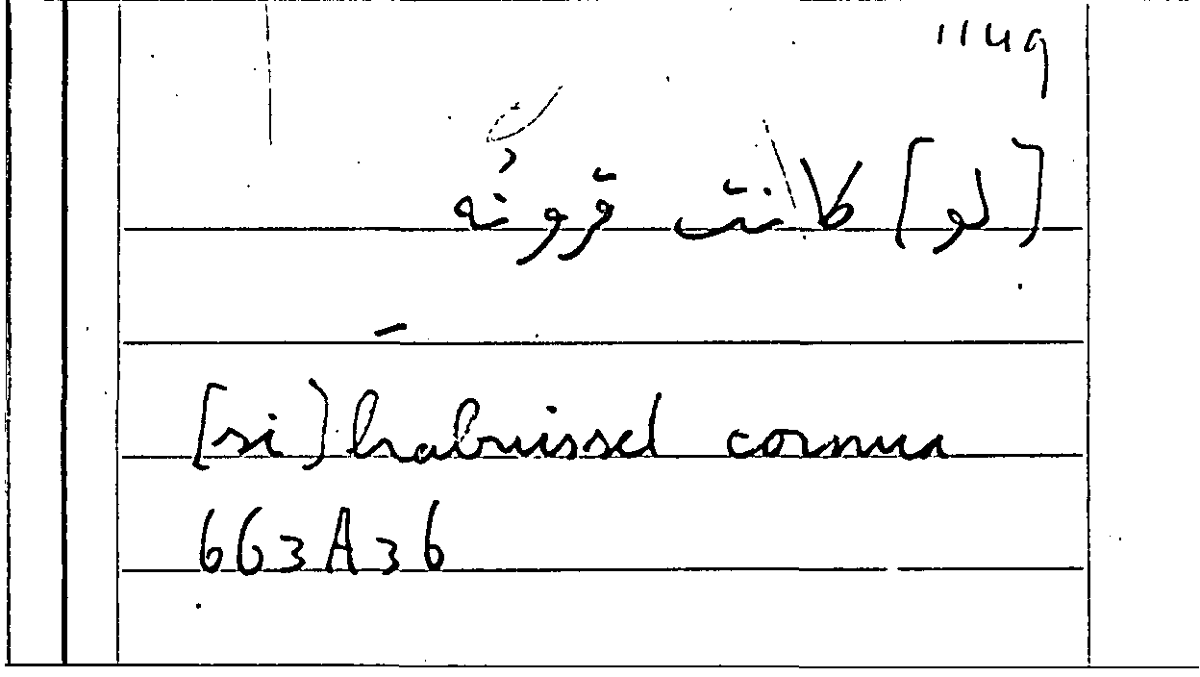 1149
[لو] كانت قرونُه
[si] habuisset cornua
663A36